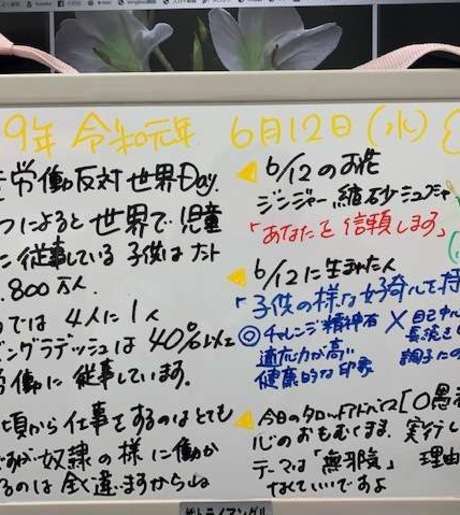 9年 令和元年 6月12日(水)
労働反対世界Day.
つによると世界で児童
に従事している子供はナント
.800万人.
では 4人に1人
ングラデッシュは40%以上
労働に従事しています。
頃から仕事をするのはとても
が奴隷の様に働か
るのは全く違いますからね
6/12のお花
ジンジャー、縮砂
「あなたを信頼します」
6/12に生まれた人
「子供の様な好奇心を持
◎チャレンジ精神 ×自己中
適応力が高い
健康的な印象
今日のタロットアドバイス[0愚者
心のおもむくまま、実行し
テーマは「無邪気」 理由
なくていいですよ
㈱トライアングル